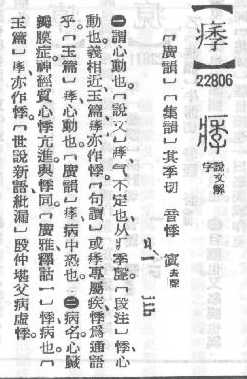 【㾕】
22806
說文解字
〔廣韻〕〔集韻〕其季切 音悸 寘去聲
ㄐㄧ jih
㊀謂心動也〔說文〕㾕气不定也从疒季聲〔段注〕悸心
動也義相近玉篇㾕亦作悸〔句讀〕或㾕專屬疾悸爲通語
乎〔玉篇〕㾕心動也〔廣韻〕㾕病中恐也㊁病名心臟
瓣膜症神經質心悸亢進與悸同〔廣雅釋詁一〕悸病也〔
玉篇〕㾕亦作悸〔世說新語紕漏〕殷仲堪父病虛悸